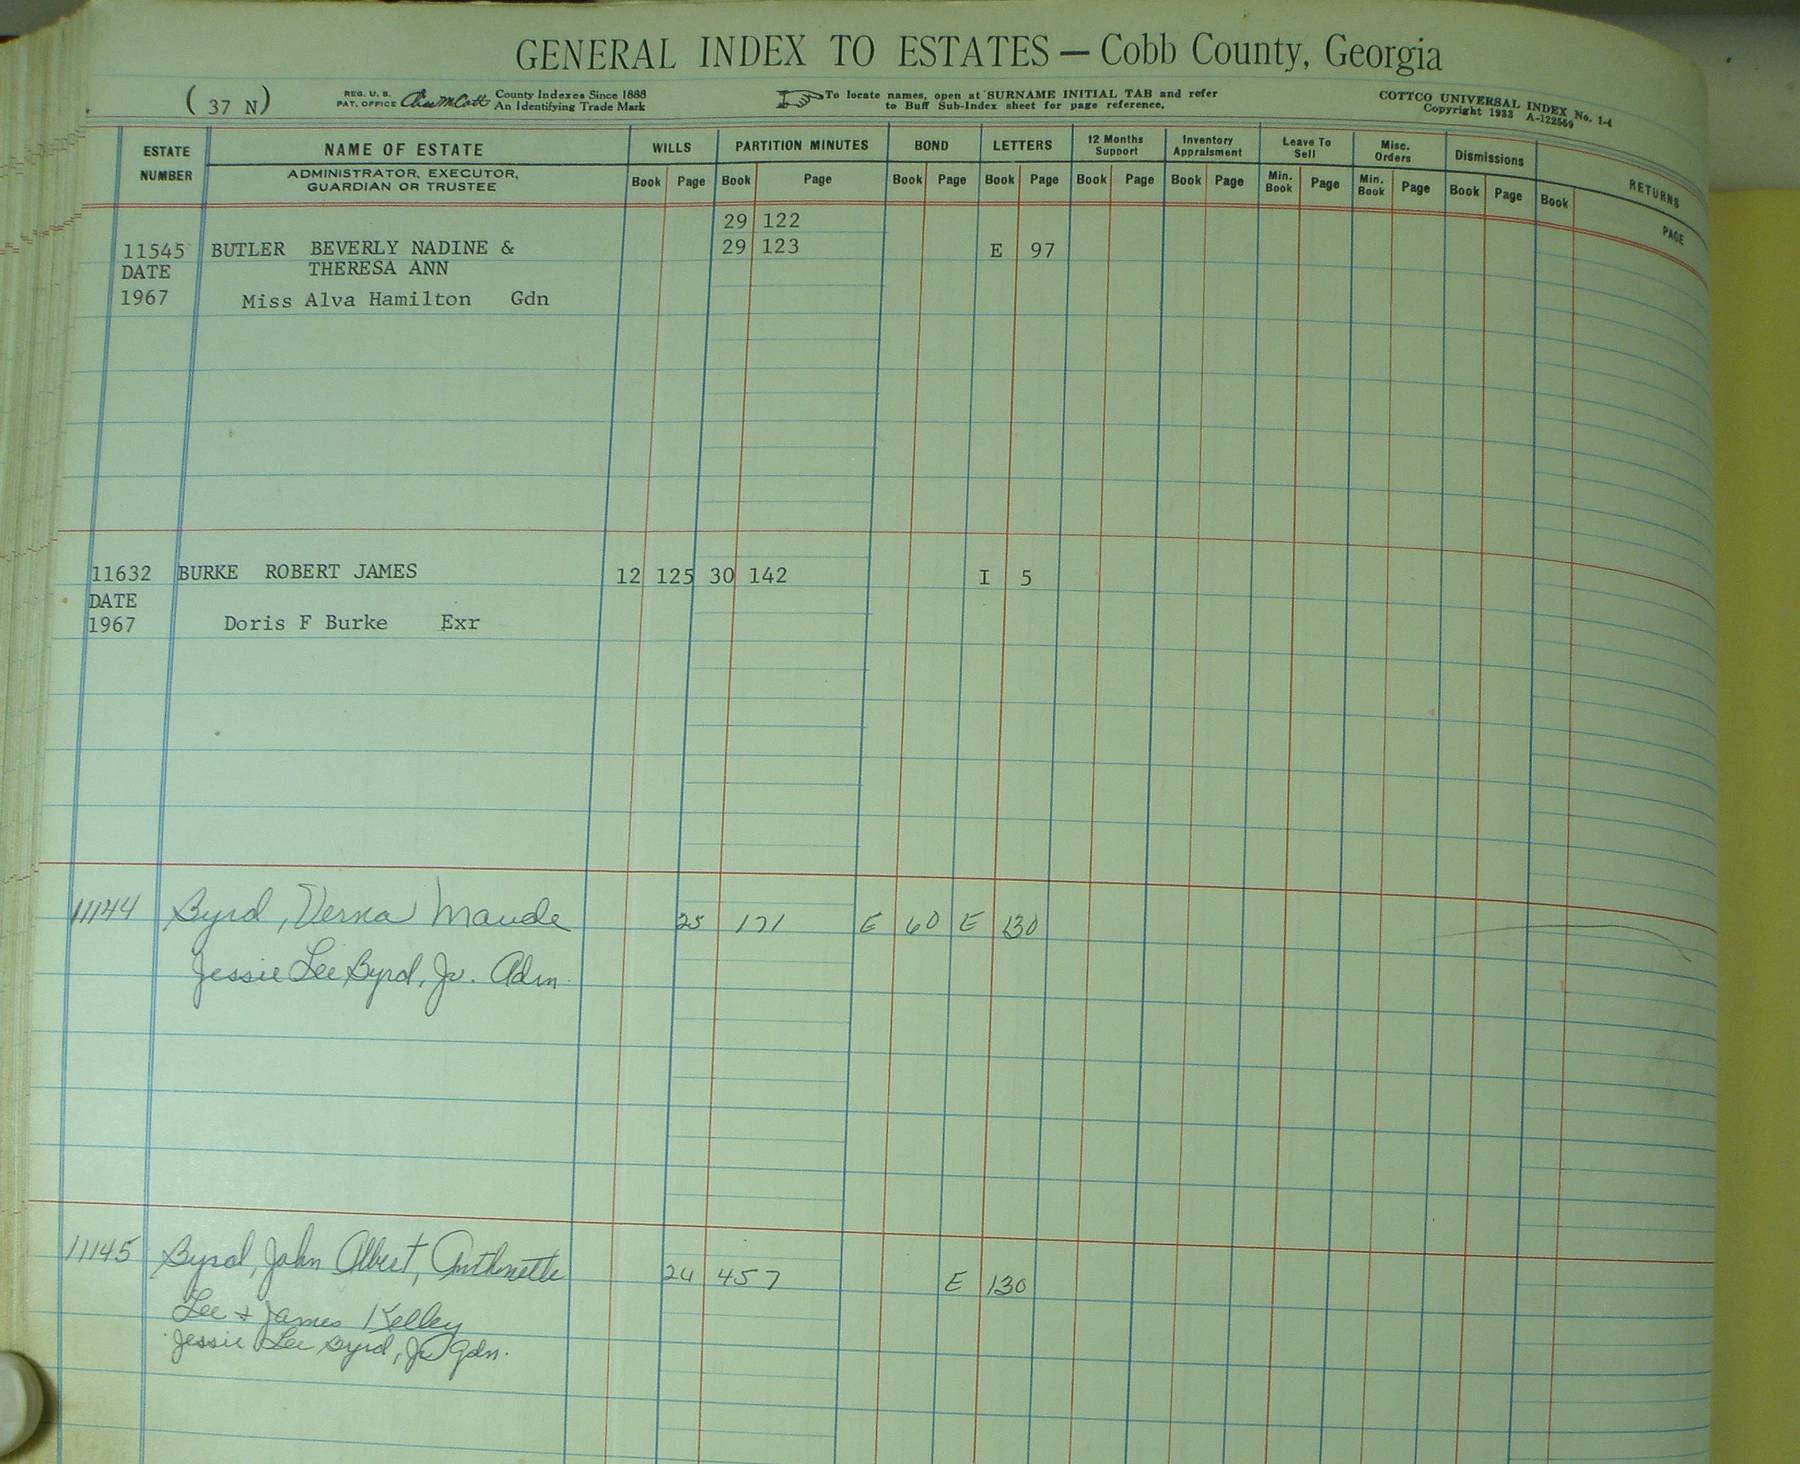 GENERAL INDEX TO ESTATES — Cobb County, Georgia
( 37 N )
REG. U. S. PAT. OFFICE County Indexes Since 1888 An Identifying Trade Mark
To locate names, open at SURNAME INITIAL TAB and refer to Buff Sub-Index sheet for page reference.
COTTCO UNIVERSAL INDEX No. 1-4
Copyright 1933 A-122569
ESTATE NUMBER NAME OF ESTATE WILLS PARTITION MINUTES BOND LETTERS 12 Months Support Inventory Appraisment Leave To Sell Misc. Orders Dismissions RETURNS
ADMINISTRATOR, EXECUTOR, GUARDIAN OR TRUSTEE Book Page Book Page Book Page Book Page Book Page Book Page Min. Book Page Min. Book Page Book Page Book PAGE
29 122
11545 BUTLER BEVERLY NADINE & 29 123 E 97
DATE THERESA ANN
1967 Miss Alva Hamilton Gdn
11632 BURKE ROBERT JAMES 12 125 30 142 I 5
DATE
1967 Doris F Burke Exr
11144 Byrd, Verna Maude 25 171 E 60 E 130
Jessie Lee Byrd, Jr. Adm.
11145 Byrd, John Albert, Anthonette 24 457 E 130
Lee + James Kelley
Jessie Lee Byrd, Jr Gdn.